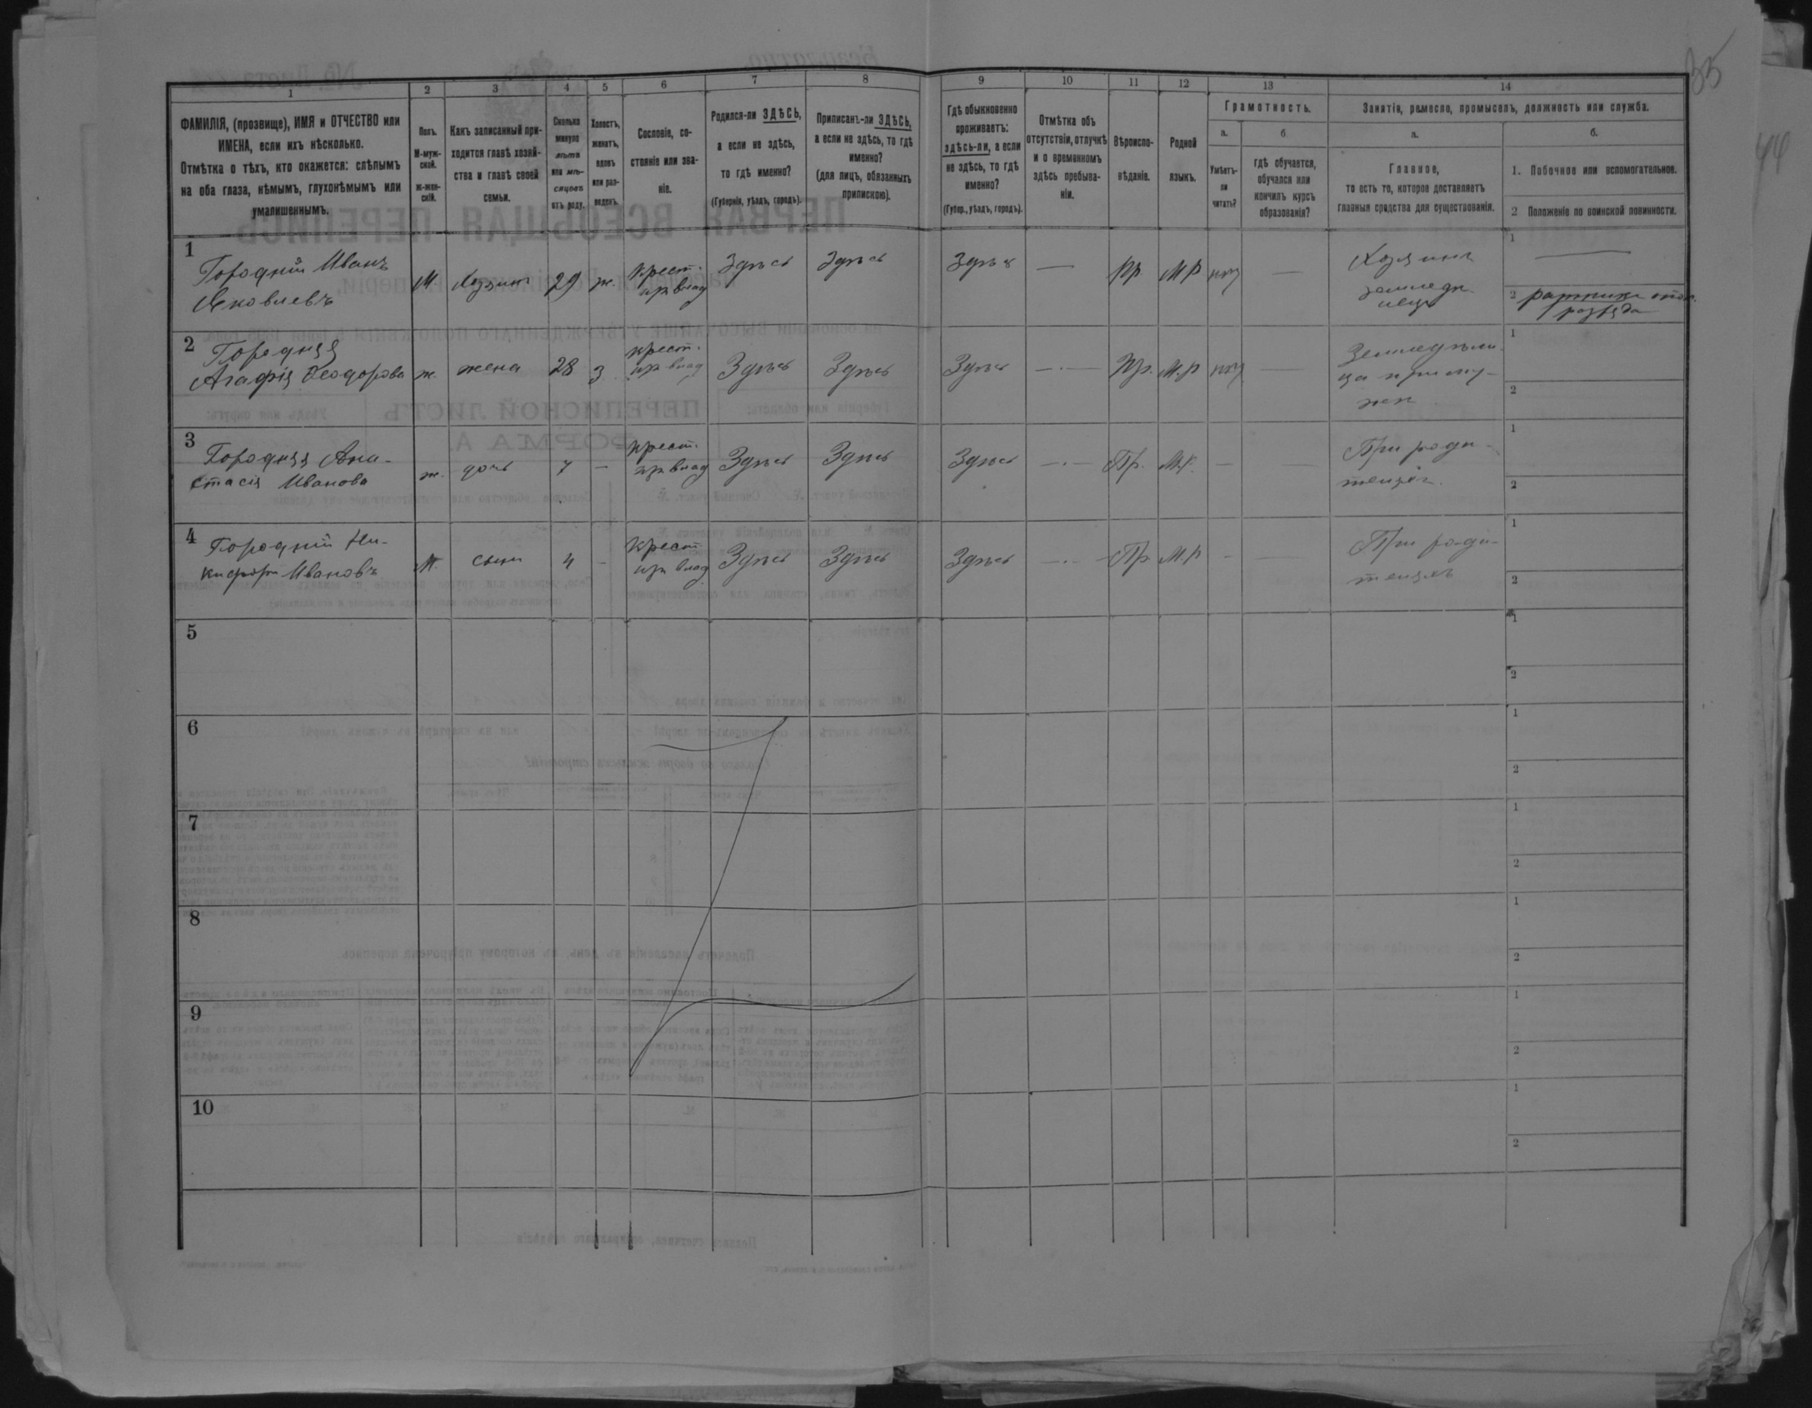 35
1
2
3
4
5
6
7
8
9
10
11
12
13
14
ФАМИЛІЯ, (прозвище), ИМЯ и ОТЧЕСТВО или
ИМЕНА, если ихъ нѣсколько.
Отмѣтка о тѣхъ, кто окажется: слѣпымъ
на оба глаза, нѣмымъ, глухонѣмымъ или
умалишеннымъ.
Полъ.
М-муж-
ской.
ж-жен-
скій.
Какъ записанный при-
ходится главѣ хозяй-
ства и главѣ своей
семьи.
Сколько
минуло
лѣтъ
или мѣ-
сяцевъ
отъ роду.
Холостъ,
женатъ,
вдовъ
или раз-
веденъ.
Сословіе, со-
стояніе или зва-
ніе.
Родился-ли ЗДѢСЬ,
а если не здѣсь,
то гдѣ именно?
(Губернія, уѣздъ, городъ).
Приписанъ-ли ЗДѢСЬ,
а если не здѣсь, то гдѣ
именно?
(для лицъ, обязанныхъ
припискою).
Гдѣ обыкновенно
проживаетъ:
здѣсь-ли, а если
не здѣсь, то гдѣ
именно?
(Губер., уѣздъ, городъ).
Отмѣтка объ
отсутствіи, отлучкѣ
и о временномъ
здѣсь пребыва-
ніи.
Вѣроиспо-
вѣданіе.
Родной
языкъ.
Грамотность.
а.
Умѣетъ-
ли
читать?
б
гдѣ обучается,
обучался или
кончилъ курсъ
образованія?
Занятіе, ремесло, промыселъ, должность или служба.
а.
Главное,
то есть то, которое доставляетъ
главныя средства для существованія.
б.
1. Побочное или вспомогательное.
2 Положеніе по воинской повинности.
1
Городній Иванъ
Яковлевъ
М.
Хозяинъ
29
ж.
Крест.
из влад
Здѣсь
Здѣсь
Здѣсь
—
Пр.
М.Р
нѣт
—
Хозяинъ
земледѣ
лецъ
1
—
2
ратникъ опол.
разряда
2
Городняя
Агафія Ѳеодорова
ж.
жена
28
з
крест.
из влад
Здѣсь
Здѣсь
Здѣсь
—
Пр.
М.Р
нѣт
—
Земледѣли-
ца при му-
жѣ
1
2
3
Городняя Ана-
стасія Иванова
ж.
дочь
7
—
Крест.
из влад
Здѣсь
Здѣсь
Здѣсь
—
Пр.
М.Р.
—
—
При роди-
теляхъ.
1
2
4
Городній Ни-
кифоръ Ивановъ
М.
сынъ
4
—
Крест
из влад
Здѣсь
Здѣсь
Здѣсь
—
Пр
М.Р
—
—
При роди-
теляхъ
1
2
5
1
2
6
1
2
7
1
2
8
1
2
9
1
2
10
1
2